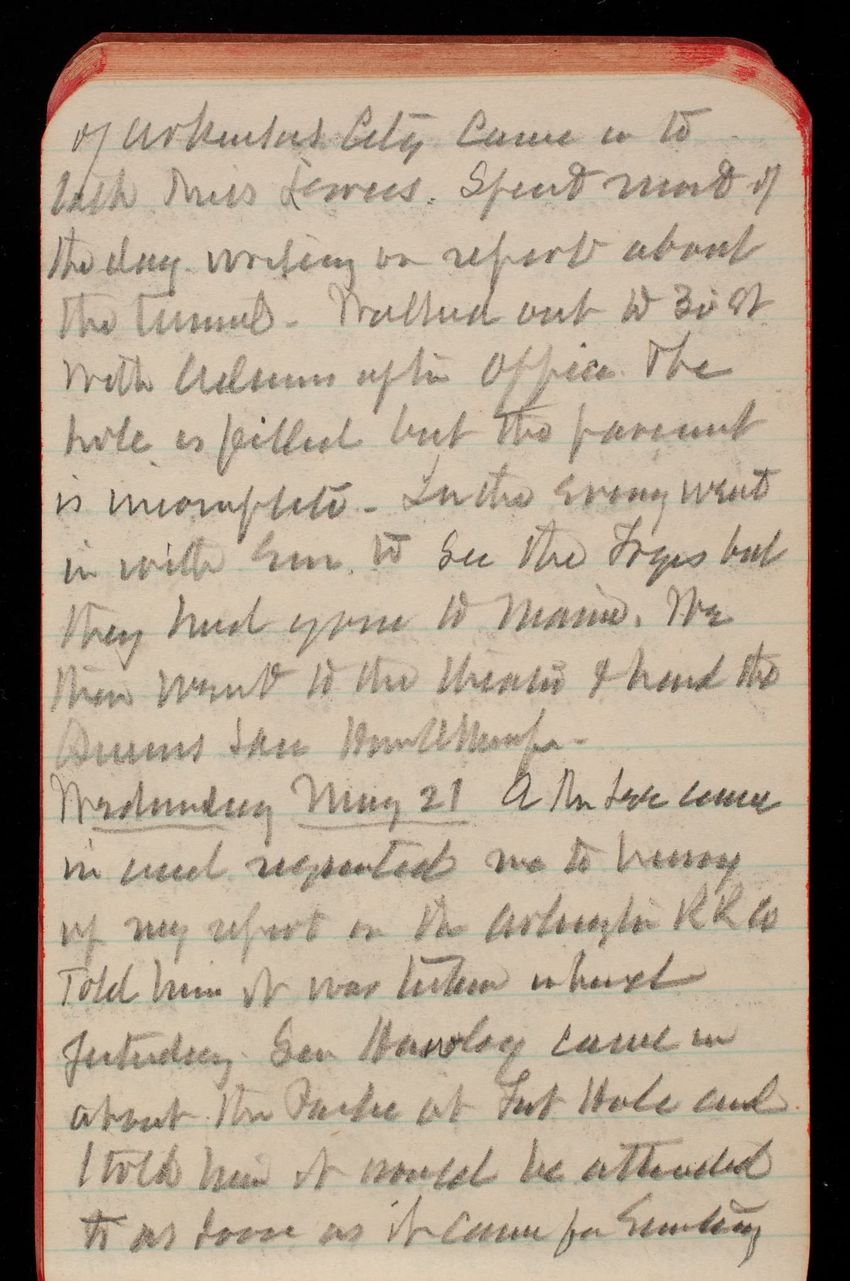 of Arkansas City came in to
talk Miss Lewees. Spent most of
the day writing on report about
the tunnel - Walked out to 30 St
with Adams after office. The
hole is filled but the pavement
is incomplete - In the Evening went
in with Em. to See the Fryes but
they had gone to Maine. We
then went to the theatre & heard the
Wednesday May 21 A Mr Lee came
in and requested me to hurry
up my report on the Arlington RR Co
Told him it was taken up
yesterday. Sen Hawley came in
about the at and
I told him it would be attended
to as soon as it came fr Senate